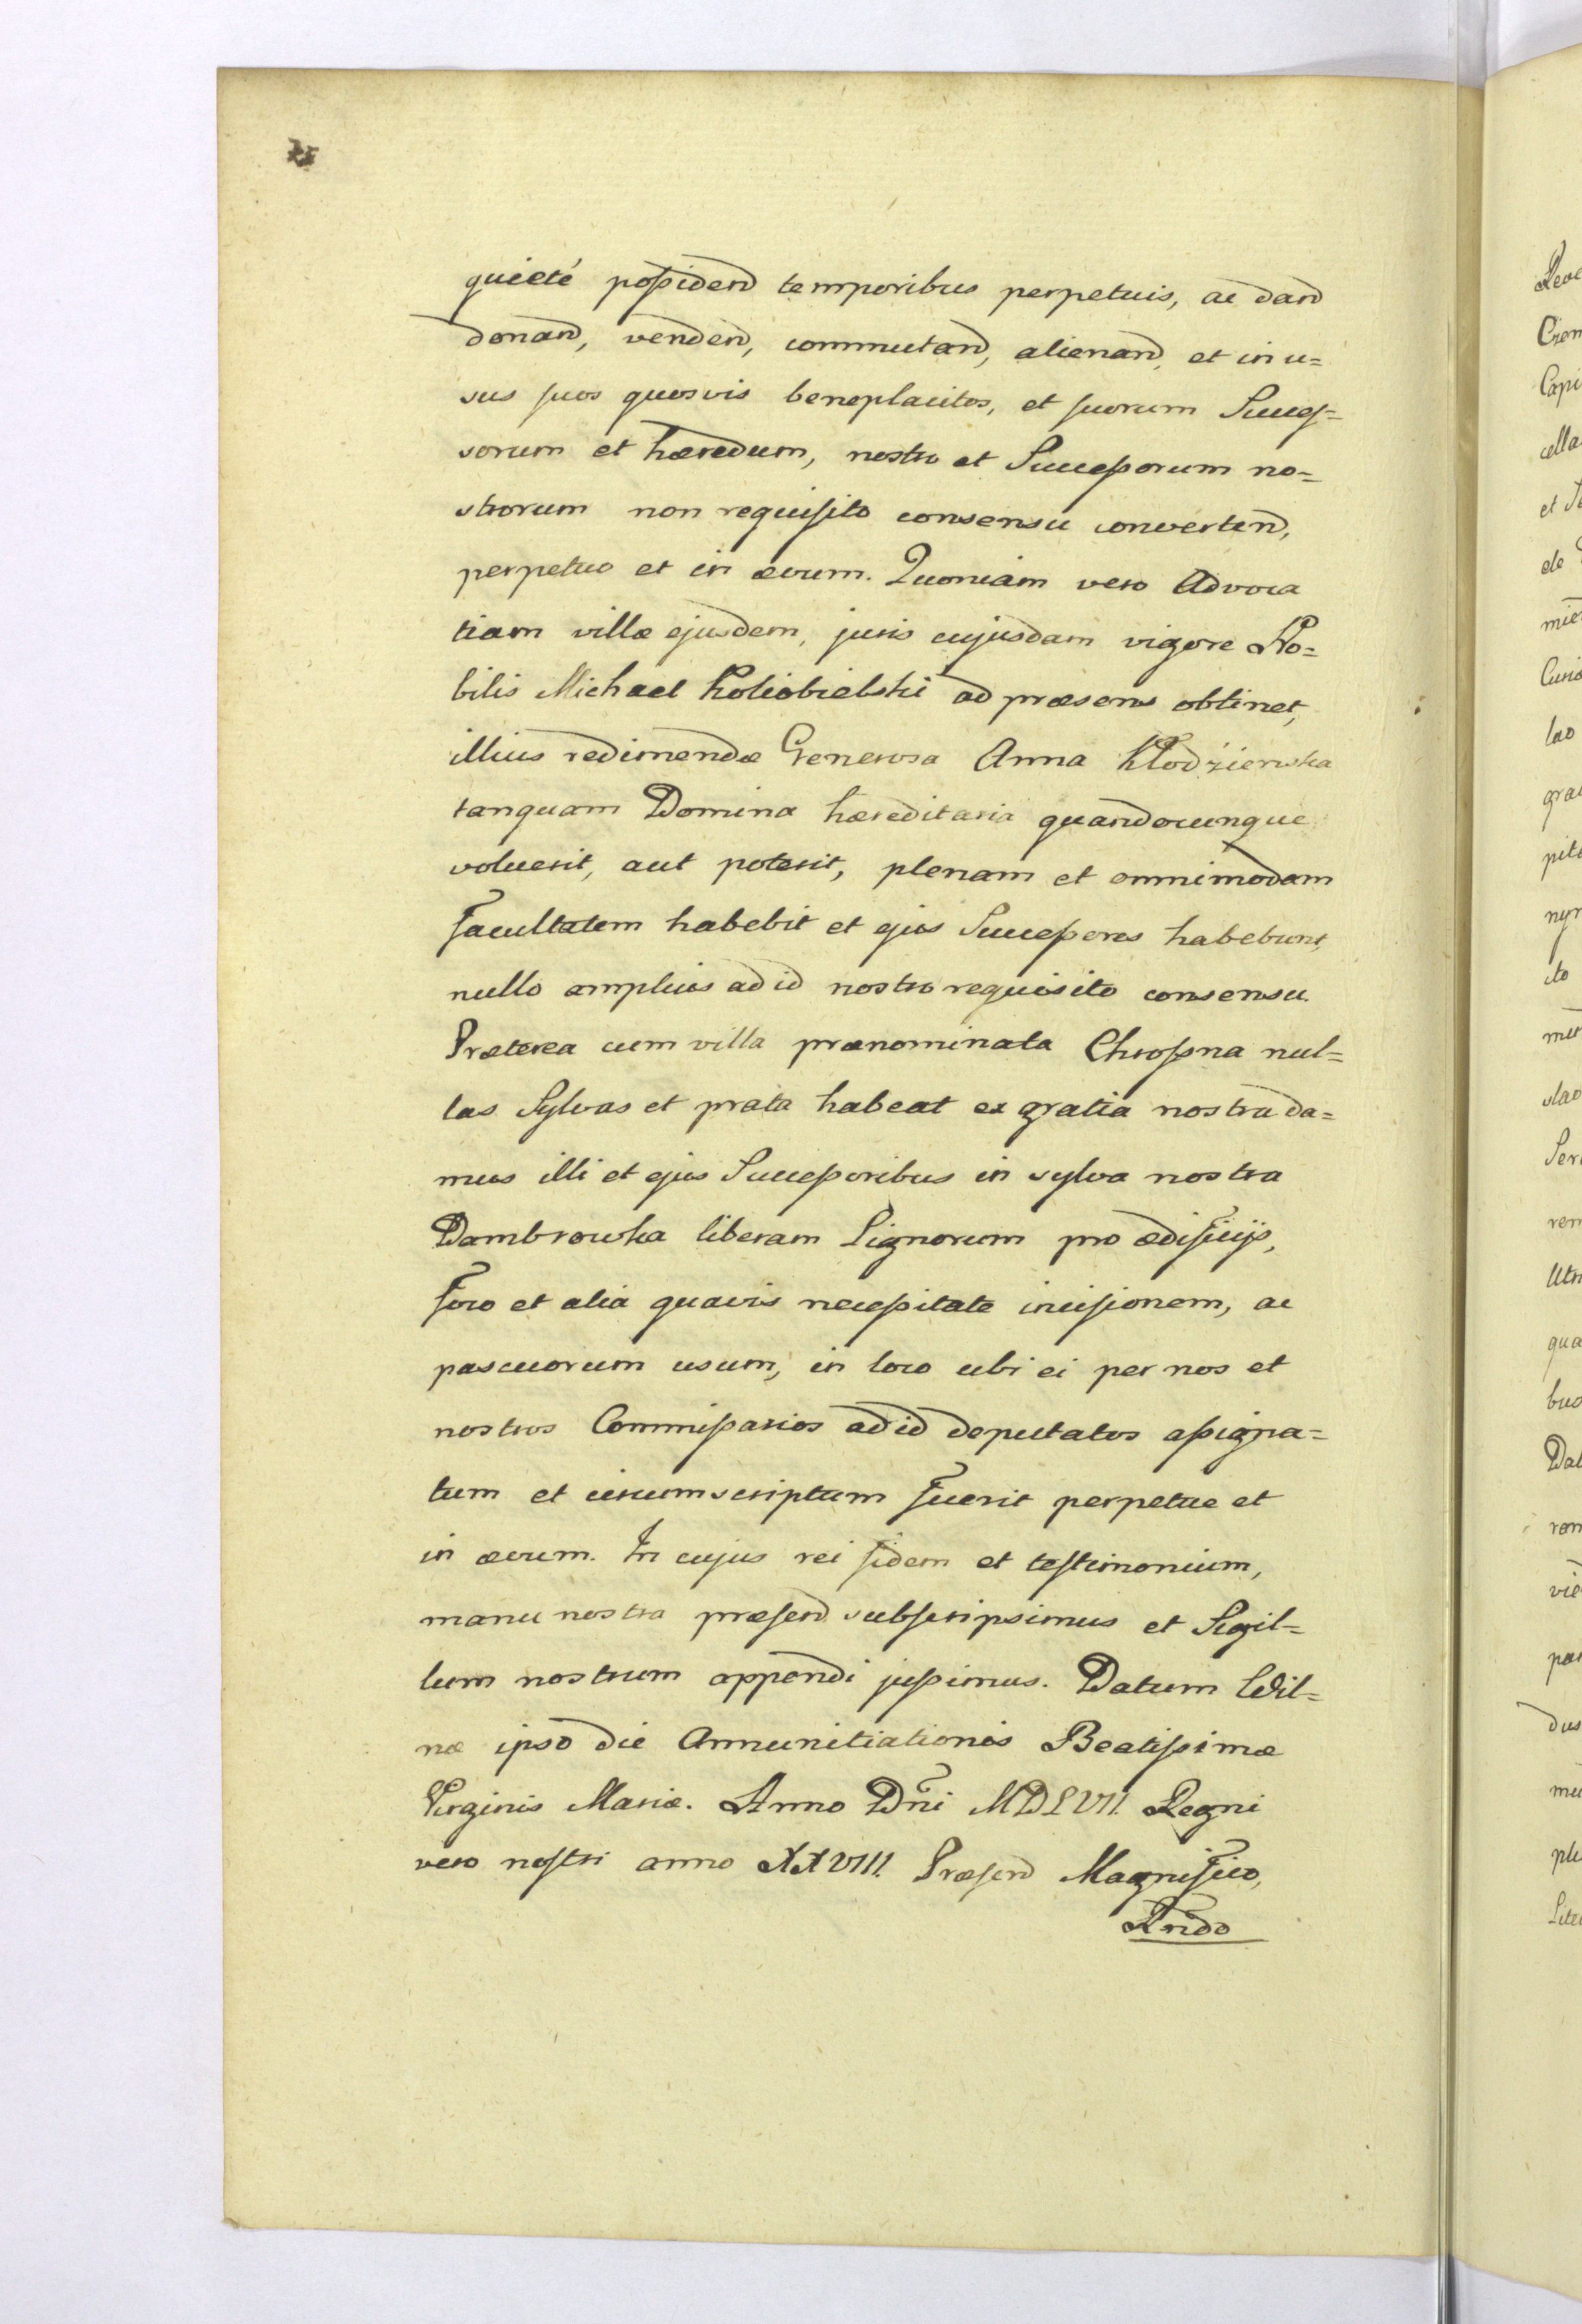 quieté possidend temporibus perpetuis, ac dand
donand, vendend, commutand, alienand, et in u=
sus suos quosvis beneplacitos, et suorum Succes=
sorum et hæredum, nostro et Successorum no=
strorum non requisito consensu convertend,
perpetuo et in ævum. Quoniam vero Advoca
tiam villæ ejusdem, juris cujusdam vigore No=
bilis Michael Koliobielski ad præsens obtinet,
illius redimendæ Generosa Anna Kłodzienska
tanquam Domina hæreditaria quandocunque
voluerit, aut poterit, plenam et omnimodam
facultatem habebit et ejus Successores habebunt,
nullo amplius ad id nostro requisito consensu.
Præterea cum villa prænominata Chrosna nul=
las Sylvas et prata habeat ex gratia nostra da=
mus illi et ejus Successoribus in sylva nostra
Dambrowka liberam Lignorum pro ædificijs,
foco et alia quavis necessitate incisionem, ac
pascuorum usum, in loco ubi ei per nos et
nostros Commissarios ad id deputatos assigna=
tum et circumscriptum fuerit perpetue et
in ævum. In cujus rei fidem et testimonium,
manu nostra præsend subscripsimus et Sigil=
lum nostrum appendi jussimus. Datum Wil=
næ ipso die Annunitiationis Beatissimæ
Virginis Mariæ. Anno Dni MDLVII. Regni
vero nostri anno XXVIII. Præsend Magnifico,
Rndo